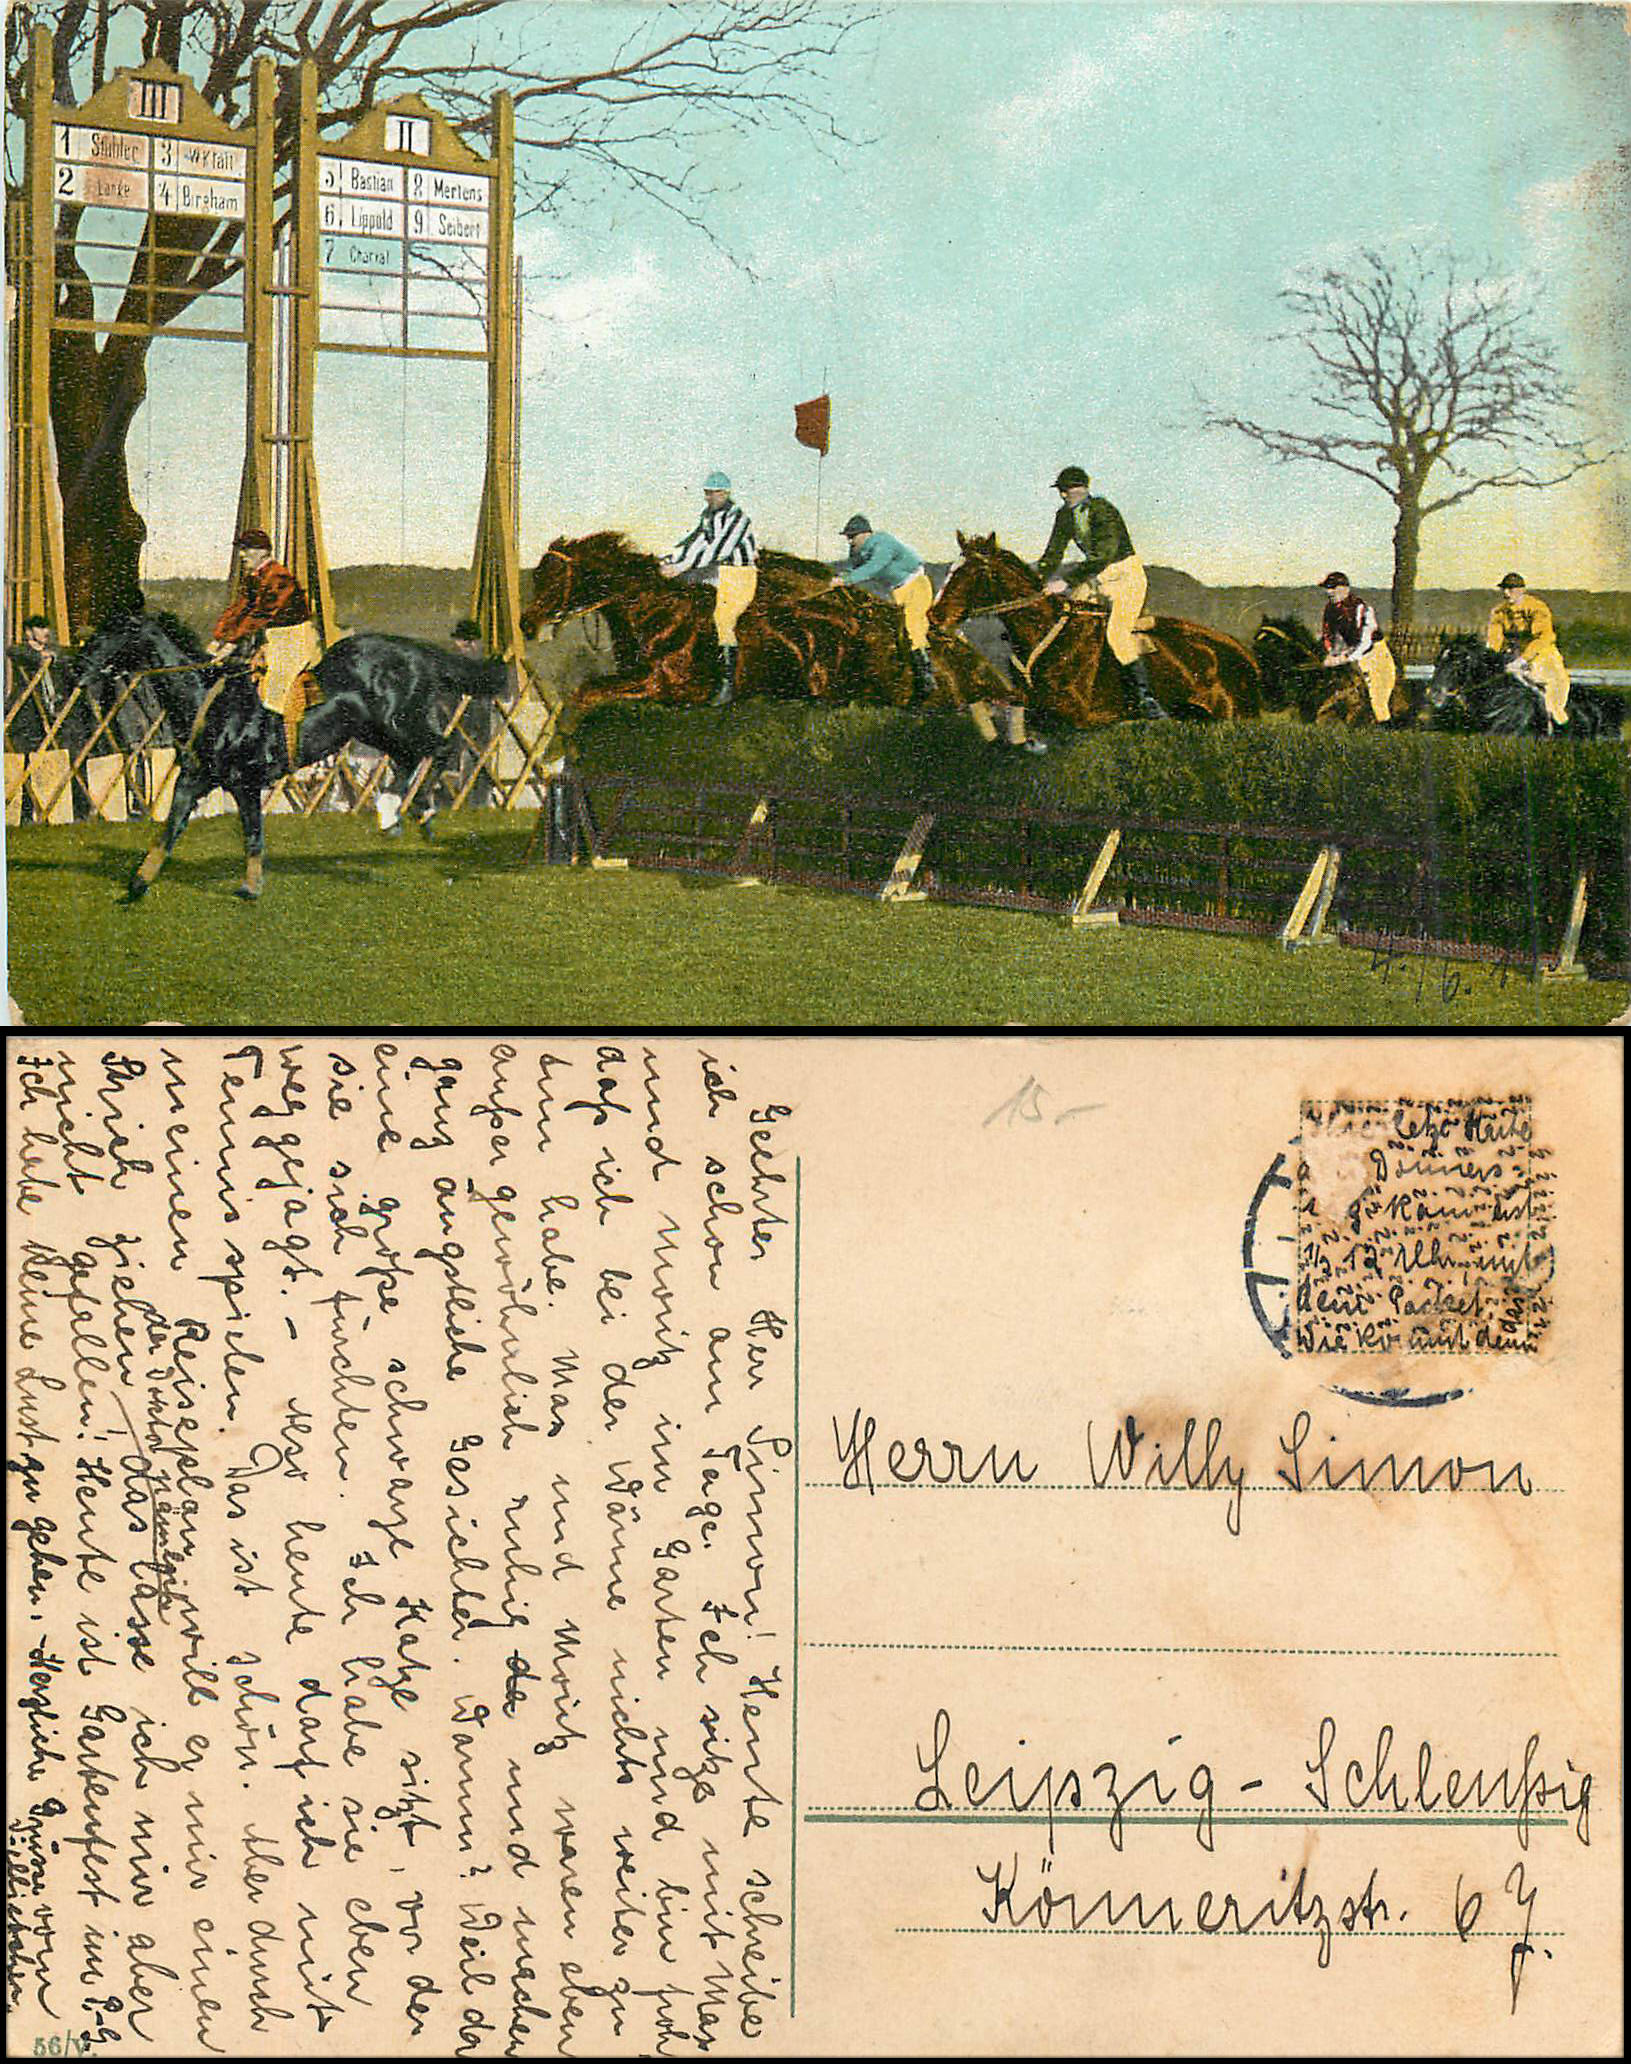 III
1 Stühler 3 Wkfall
2 Lanke 4 Birgham
II
5 Bastian 8 Mertens
6. Lippold 9 Seibert
7 Charval
4./6. 1
15.-
Geehrter Herr Simon! Heute schreibe
ich schon am Tage. Ich sitze mit Max
und Moritz im Garten und bin froh,
daß ich bei der Wärme nichts weiter zu
tun habe. Max und Moritz waren eben
außergewöhnlich ruhig da und machen
ganz ängstliche Gesichter. Warum? Weil da
eine große schwarze Katze sitzt, vor der
sie sich fürchten. Ich habe sie eben
weggejagt. - Also heute darf ich mit
Tennis spielen. Das ist schön. Aber durch
meinen Reiseplan will er mir einen
der Doktor nämlich
Strich ziehen, das lasse ich mir aber
nicht gefallen! Heute ist Gartenfest im P.-G.
Ich habe keine Lust zu gehen. Herzliche Grüsse vom
56/V.
Heute
Donners-
1/2 12 Uhr, mit
dem Packet.
Wie kommt denn das?
Herrn Willy Simon
Leipzig-Schleußig
Könneritzstr. 67.